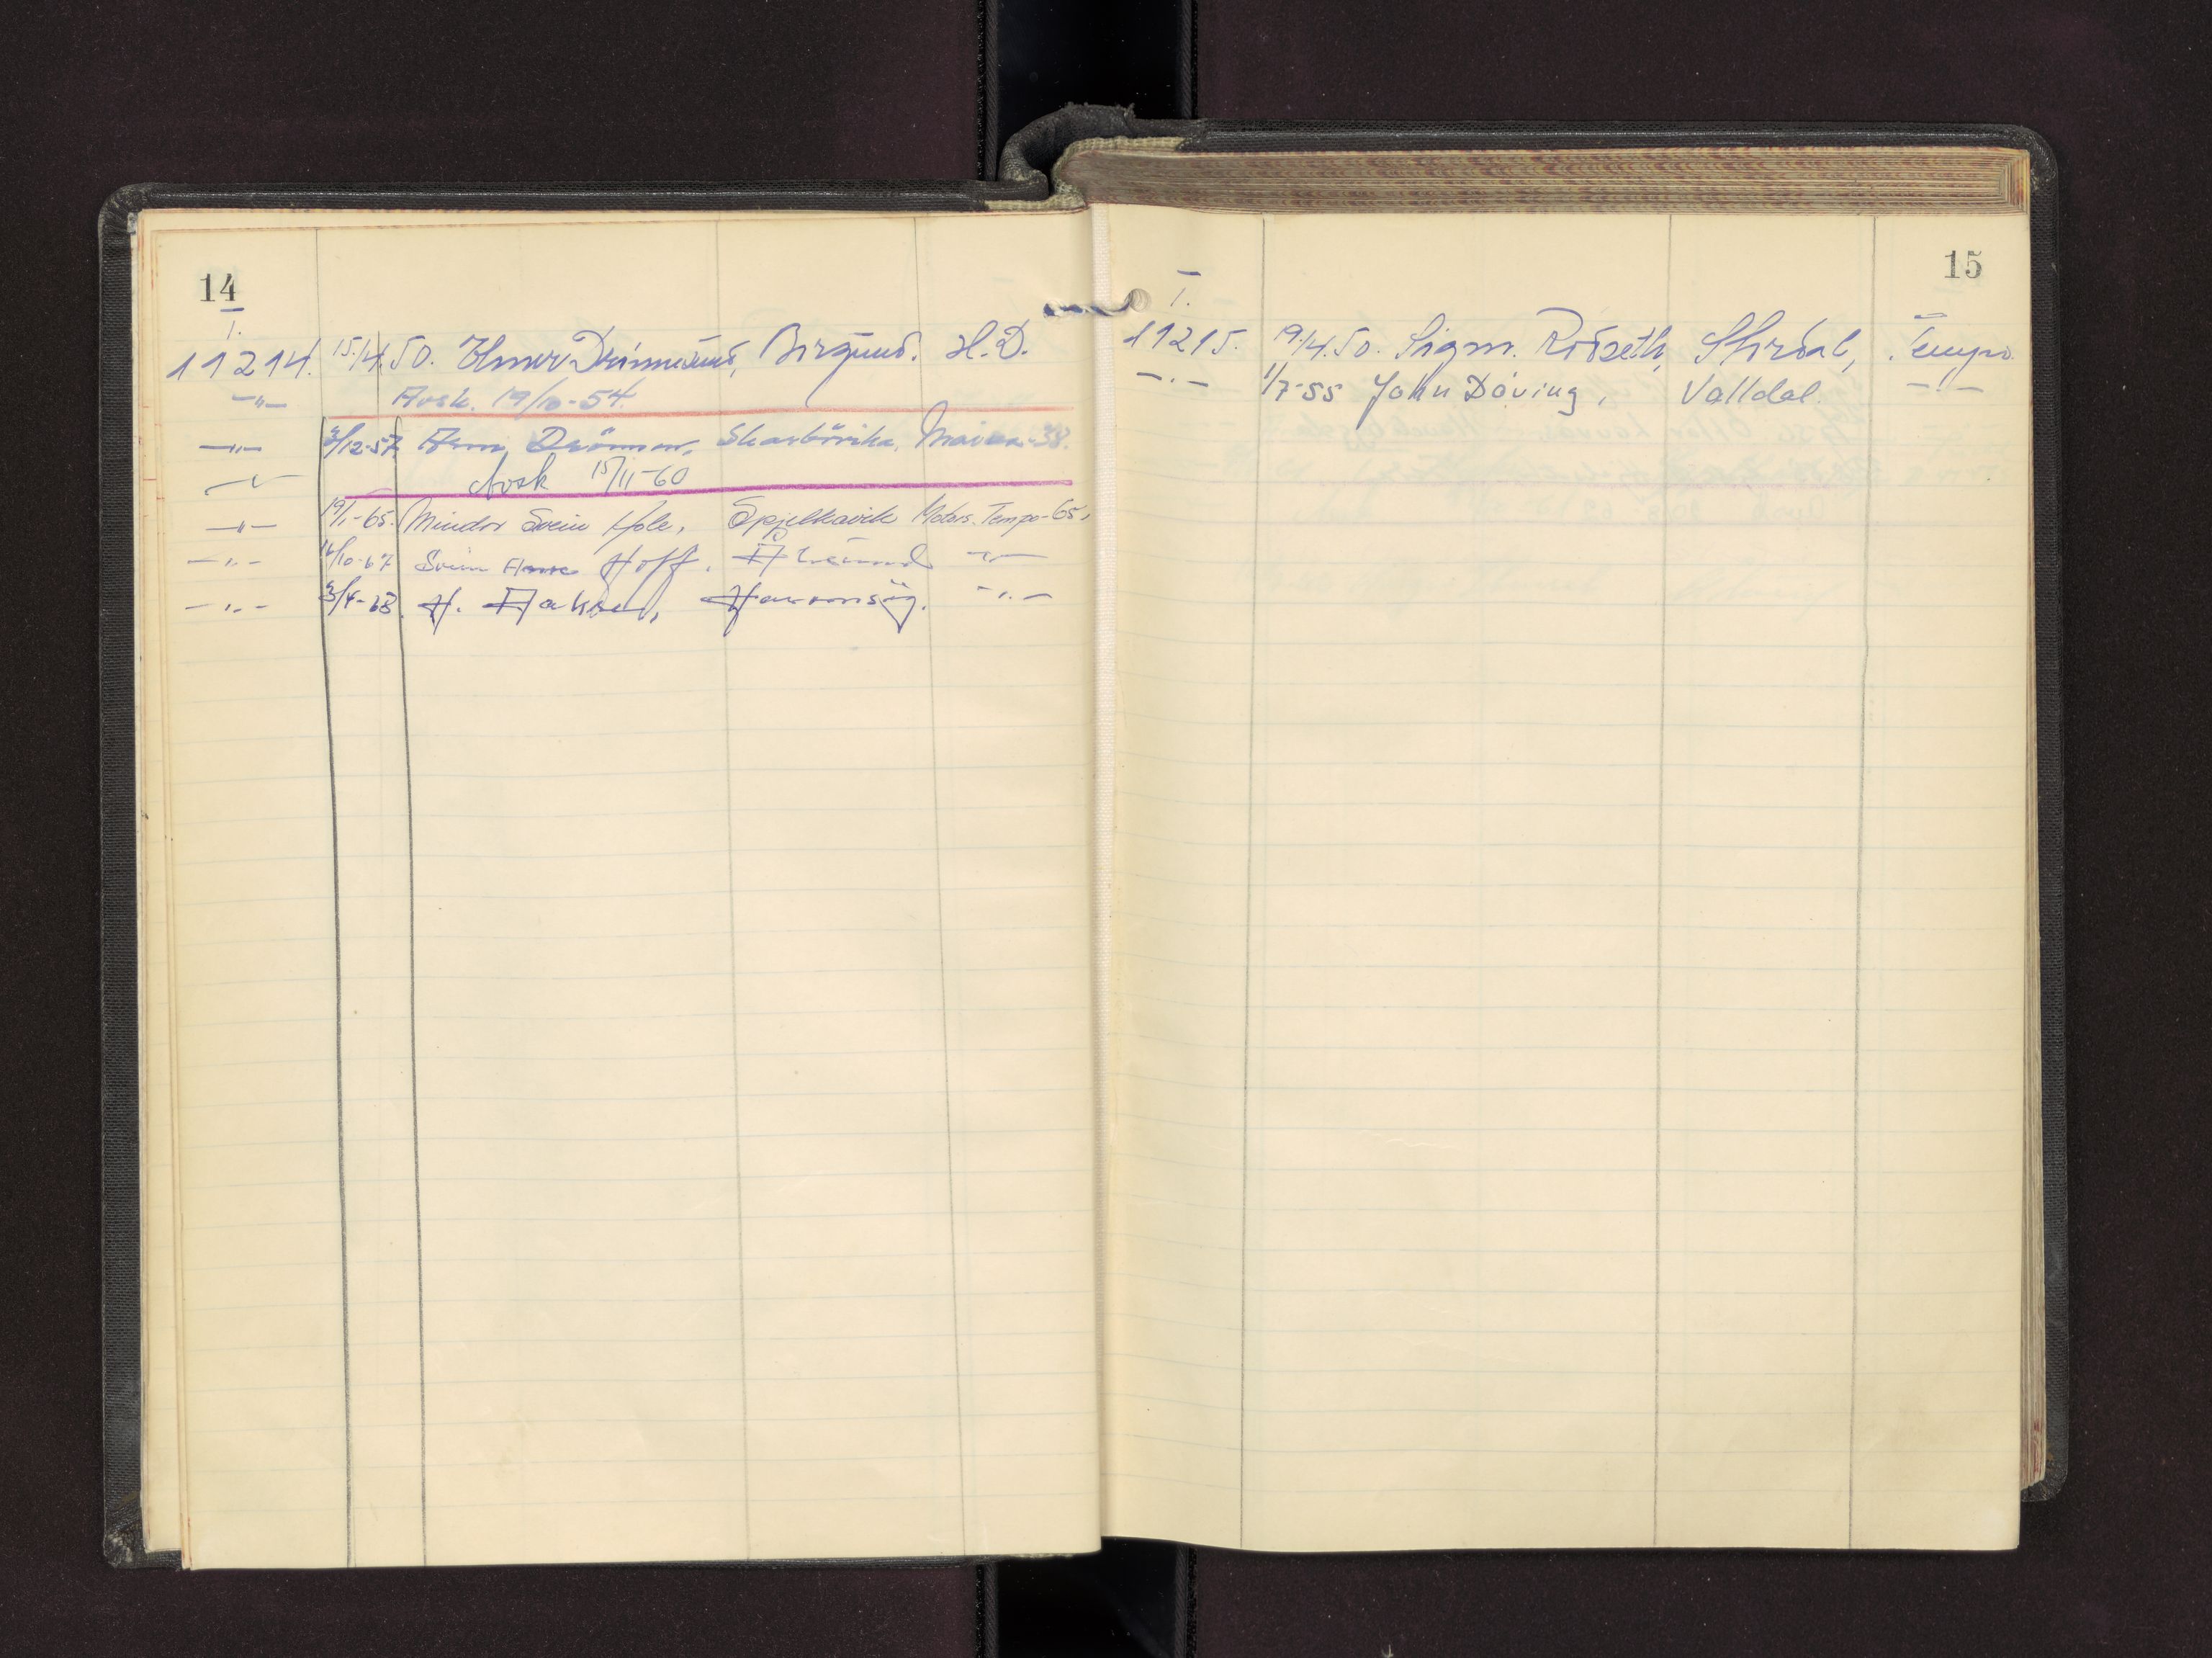 14
I.
11214. 15./4.50. Elmer Drinnesund, Borgund. H.D.
-"- Avsk. 19/10-54.
-"- 3/12-57 Arne Drönnen, Skarbövika, Maico-38.
-"- Avsk 15/11-60
-"- 19/1-65. Mindor Svein Hole, Spjelkavik Motors. Tempo-65,
-"- 16/10-67 Svein Arne Hoff. Ålesund -"-
-"- 3/4-68. H. Aakre, Haramsöy. -"-
15
I.
11215. 19./4.50. Sigm. Rödseth, Stordal, Tempo.
-"- 1/7-55 John Döving, Valldal. -"-